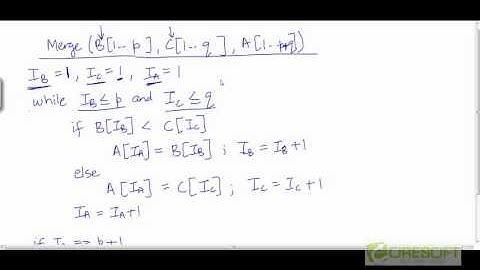 Merge (B[1--p], C[1--q], A[1--p+q])
I_B = 1, I_C = 1, I_A = 1
while I_B ≤ p and I_C ≤ q
if B[I_B] < C[I_C]
A[I_A] = B[I_B] ; I_B = I_B + 1
else
A[I_A] = C[I_C] ; I_C = I_C + 1
I_A = I_A + 1
if I_B == p+1
CORESOFT